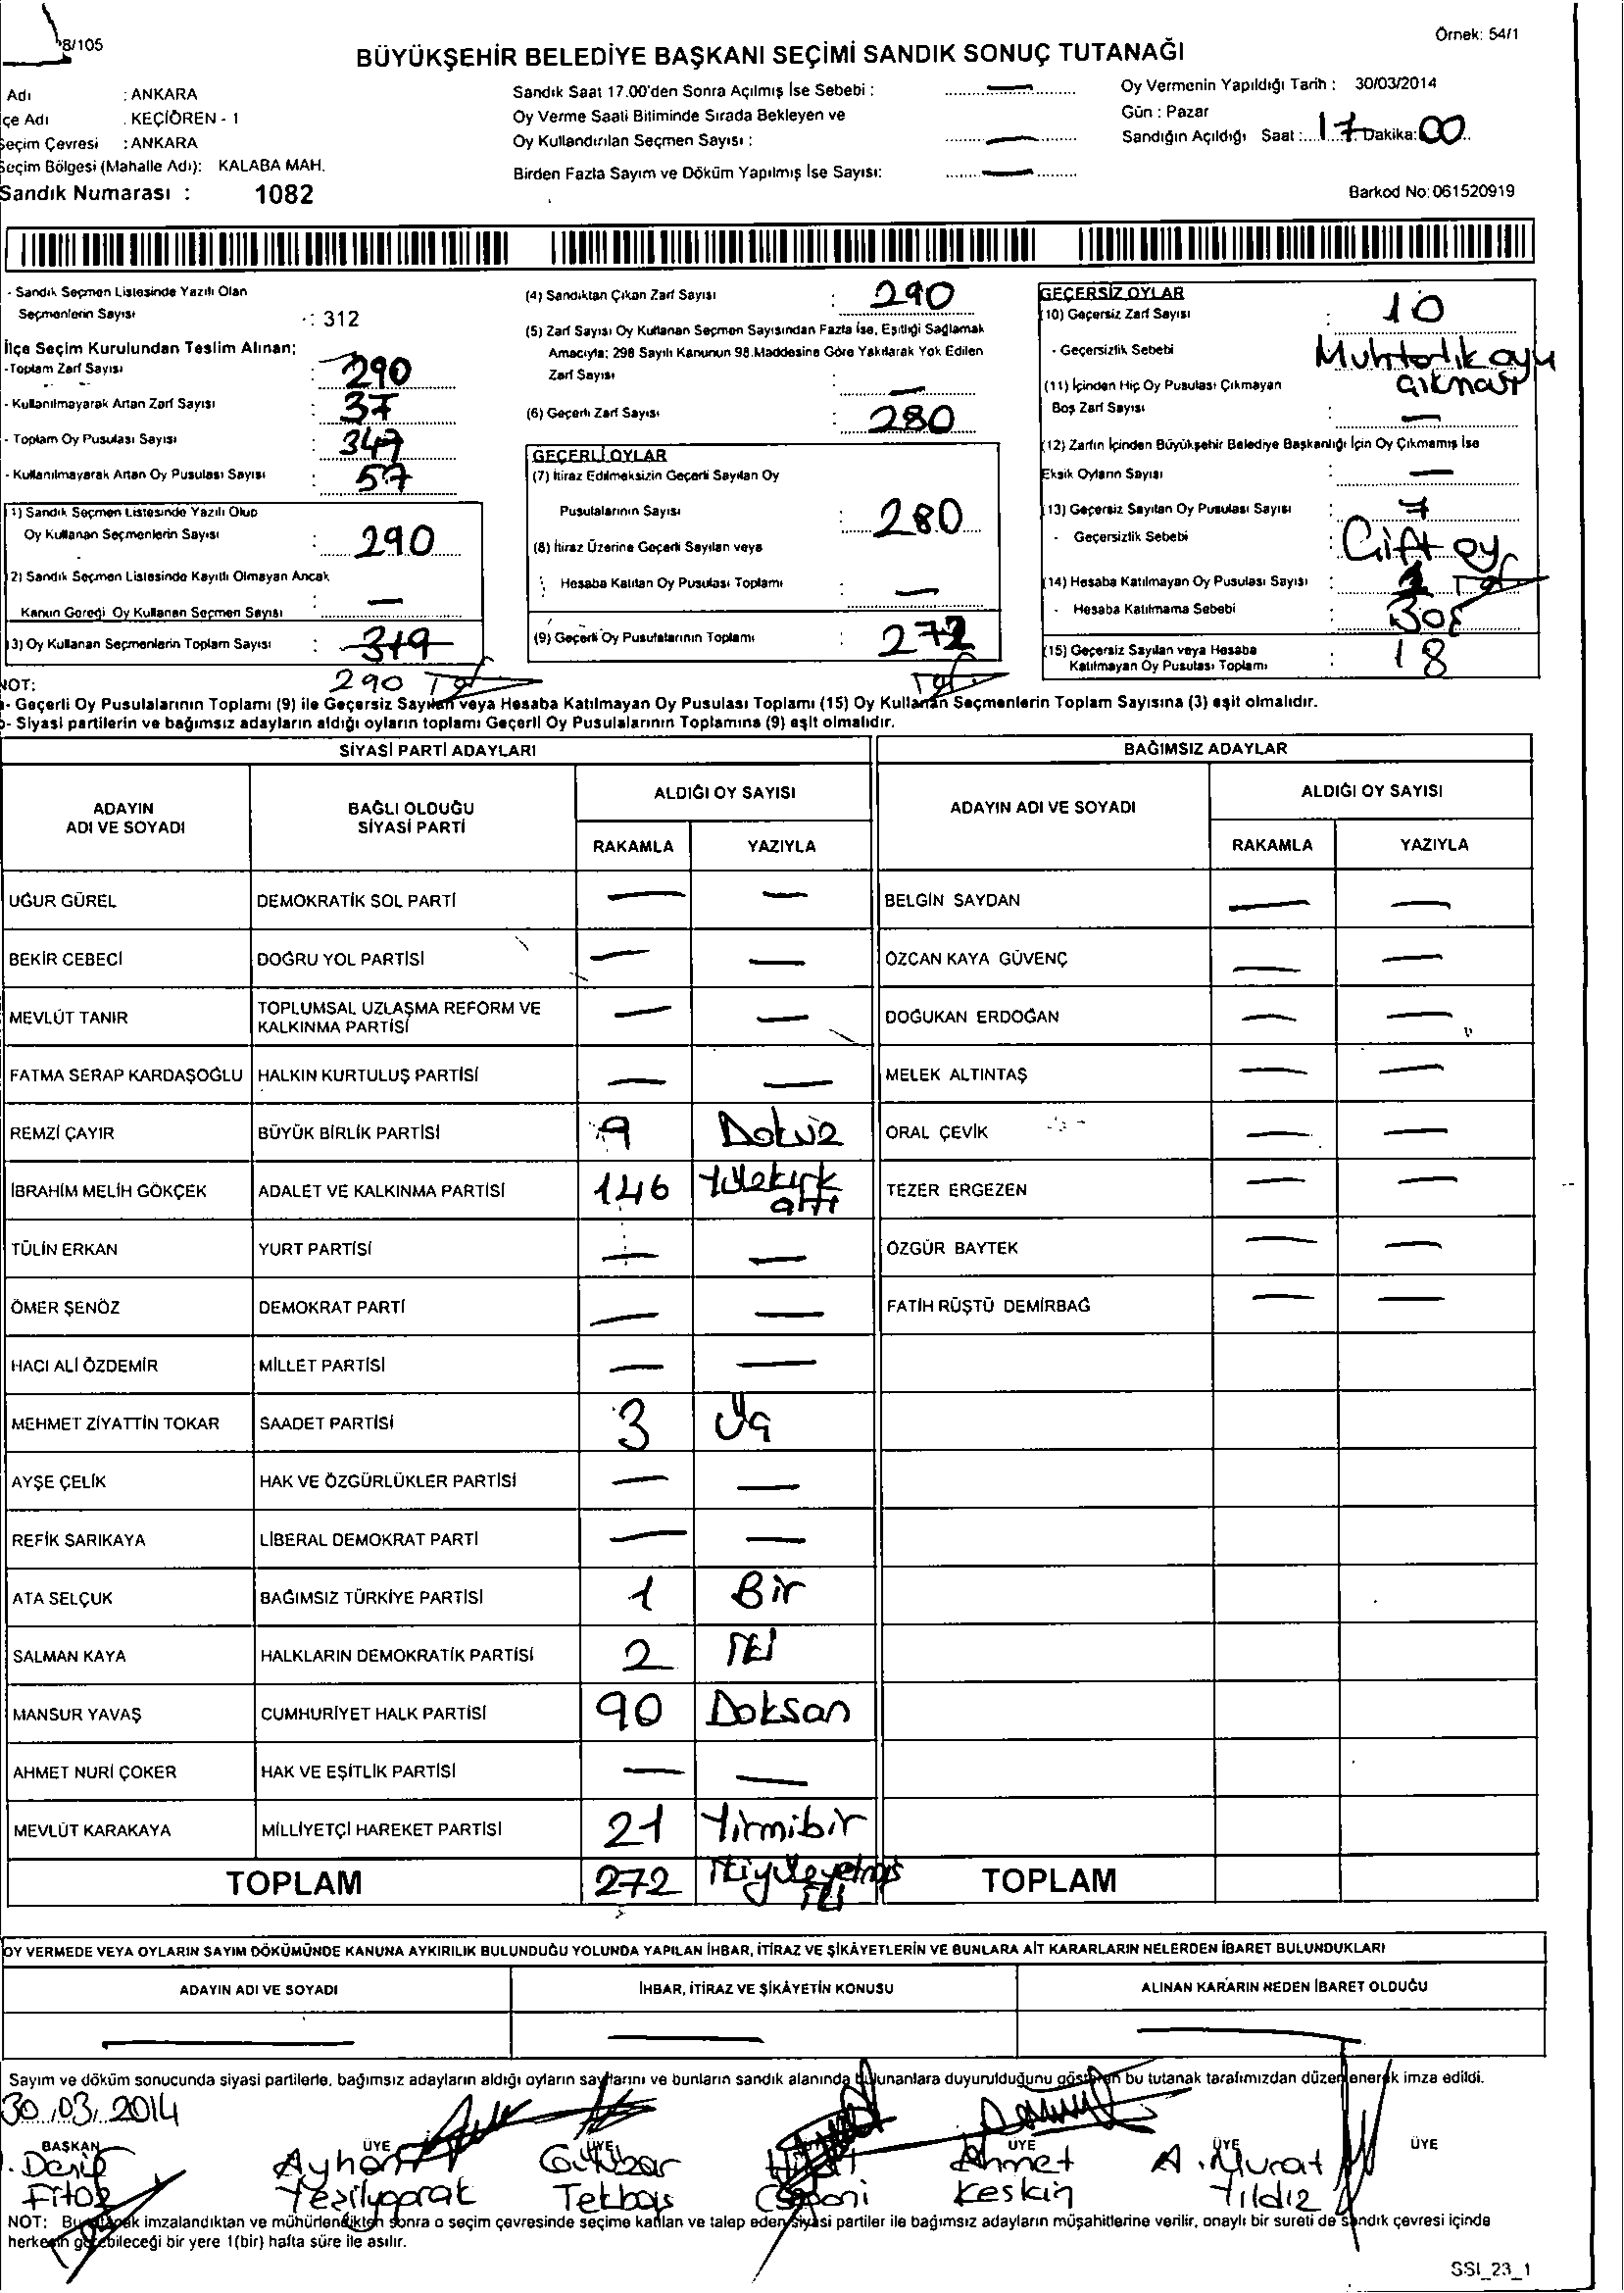 8/105
Örnek: 54/1
BÜYÜKŞEHİR BELEDİYE BAŞKANI SEÇİMİ SANDIK SONUÇ TUTANAĞI
Adı : ANKARA
çe Adı : KEÇİÖREN - 1
Seçim Çevresi : ANKARA
Seçim Bölgesi (Mahalle Adı): KALABA MAH.
Sandık Numarası : 1082
Sandık Saat 17.00'den Sonra Açılmış İse Sebebi : —
Oy Verme Saati Bitiminde Sırada Bekleyen ve
Oy Kullandırılan Seçmen Sayısı : —
Birden Fazla Sayım ve Döküm Yapılmış İse Sayısı: —
Oy Vermenin Yapıldığı Tarih : 30/03/2014
Gün : Pazar
Sandığın Açıldığı Saat : 17 Dakika: 00
Barkod No: 061520919
- Sandık Seçmen Listesinde Yazılı Olan
Seçmenlerin Sayısı : 312
İlçe Seçim Kurulundan Teslim Alınan;
-Toplam Zarf Sayısı : 290
- Kullanılmayarak Artan Zarf Sayısı : 37
- Toplam Oy Pusulası Sayısı : 347
- Kullanılmayarak Artan Oy Pusulası Sayısı : 57
1) Sandık Seçmen Listesinde Yazılı Olup
Oy Kullanan Seçmenlerin Sayısı : 290
2) Sandık Seçmen Listesinde Kayıtlı Olmayan Ancak
Kanun Gereği Oy Kullanan Seçmen Sayısı : —
3) Oy Kullanan Seçmenlerin Toplam Sayısı : 319
290
(4) Sandıktan Çıkan Zarf Sayısı : 290
(5) Zarf Sayısı Oy Kullanan Seçmen Sayısından Fazla İse, Eşitliği Sağlamak
Amacıyla; 298 Sayılı Kanunun 98.Maddesine Göre Yakılarak Yok Edilen
Zarf Sayısı : —
(6) Geçerli Zarf Sayısı : 280
GEÇERLİ OYLAR
(7) İtiraz Edilmeksizin Geçerli Sayılan Oy
Pusulalarının Sayısı : 280
(8) İtiraz Üzerine Geçerli Sayılan veya
Hesaba Katılan Oy Pusulası Toplamı : —
(9) Geçerli Oy Pusulalarının Toplamı : 272
GEÇERSİZ OYLAR
10) Geçersiz Zarf Sayısı : 10
- Geçersizlik Sebebi Muhtarlık oyu
çıkması
(11) İçinden Hiç Oy Pusulası Çıkmayan
Boş Zarf Sayısı : —
(12) Zarfın İçinden Büyükşehir Belediye Başkanlığı İçin Oy Çıkmamış İse
Eksik Oyların Sayısı : —
13) Geçersiz Sayılan Oy Pusulası Sayısı : 7
- Geçersizlik Sebebi : Çift oy
(14) Hesaba Katılmayan Oy Pusulası Sayısı : 1
- Hesaba Katılmama Sebebi : Boş
(15) Geçersiz Sayılan veya Hesaba
Katılmayan Oy Pusulası Toplamı : 18
NOT:
- Geçerli Oy Pusulalarının Toplamı (9) ile Geçersiz Sayılan veya Hesaba Katılmayan Oy Pusulası Toplamı (15) Oy Kullanan Seçmenlerin Toplam Sayısına (3) eşit olmalıdır.
- Siyasi partilerin ve bağımsız adayların aldığı oyların toplamı Geçerli Oy Pusulalarının Toplamına (9) eşit olmalıdır.
SİYASİ PARTİ ADAYLARI BAĞIMSIZ ADAYLAR
ADAYIN
ADI VE SOYADI
BAĞLI OLDUĞU
SİYASİ PARTİ
ALDIĞI OY SAYISI
RAKAMLA YAZIYLA
ADAYIN ADI VE SOYADI
ALDIĞI OY SAYISI
RAKAMLA YAZIYLA
UĞUR GÜREL DEMOKRATİK SOL PARTİ — — BELGİN SAYDAN — —
BEKİR CEBECİ DOĞRU YOL PARTİSİ — — ÖZCAN KAYA GÜVENÇ — —
MEVLÜT TANIR TOPLUMSAL UZLAŞMA REFORM VE
KALKINMA PARTİSİ — — DOĞUKAN ERDOĞAN — —
FATMA SERAP KARDAŞOĞLU HALKIN KURTULUŞ PARTİSİ — — MELEK ALTINTAŞ — —
REMZİ ÇAYIR BÜYÜK BİRLİK PARTİSİ 9 Dokuz ORAL ÇEVİK — —
İBRAHİM MELİH GÖKÇEK ADALET VE KALKINMA PARTİSİ 146 Yüzkırk
altı TEZER ERGEZEN — —
TÜLİN ERKAN YURT PARTİSİ — — ÖZGÜR BAYTEK — —
ÖMER ŞENÖZ DEMOKRAT PARTİ — — FATİH RÜŞTÜ DEMİRBAĞ — —
HACI ALİ ÖZDEMİR MİLLET PARTİSİ — —
MEHMET ZİYATTİN TOKAR SAADET PARTİSİ 3 Üç
AYŞE ÇELİK HAK VE ÖZGÜRLÜKLER PARTİSİ — —
REFİK SARIKAYA LİBERAL DEMOKRAT PARTİ — —
ATA SELÇUK BAĞIMSIZ TÜRKİYE PARTİSİ 1 Bir
SALMAN KAYA HALKLARIN DEMOKRATİK PARTİSİ 2 İki
MANSUR YAVAŞ CUMHURİYET HALK PARTİSİ 90 Doksan
AHMET NURİ ÇOKER HAK VE EŞİTLİK PARTİSİ — —
MEVLÜT KARAKAYA MİLLİYETÇİ HAREKET PARTİSİ 21 Yirmibir
TOPLAM 272 İkiyüzyetmiş
iki TOPLAM
OY VERMEDE VEYA OYLARIN SAYIM DÖKÜMÜNDE KANUNA AYKIRILIK BULUNDUĞU YOLUNDA YAPILAN İHBAR, İTİRAZ VE ŞİKÂYETLERİN VE BUNLARA AİT KARARLARIN NELERDEN İBARET BULUNDUKLARI
ADAYIN ADI VE SOYADI İHBAR, İTİRAZ VE ŞİKÂYETİN KONUSU ALINAN KARARIN NEDEN İBARET OLDUĞU
— — —
Sayım ve döküm sonucunda siyasi partilerle, bağımsız adayların aldığı oyların sayılarını ve bunların sandık alanında bulunanlara duyurulduğunu gösteren bu tutanak tarafımızdan düzenlenerek imza edildi.
30.03.2014
BAŞKAN ÜYE ÜYE ÜYE ÜYE ÜYE
Ayhan Gülübar Ahmet A. Murat
Yeşilyaprak Tekbaş Keskin Yıldız
NOT: Bu tutanak imzalandıktan ve mühürlendikten sonra o seçim çevresinde seçime katılan ve talep eden siyasi partiler ile bağımsız adayların müşahitlerine verilir, onaylı bir sureti de sandık çevresi içinde
herkesin görebileceği bir yere 1(bir) hafta süre ile asılır.
SSI_23_1